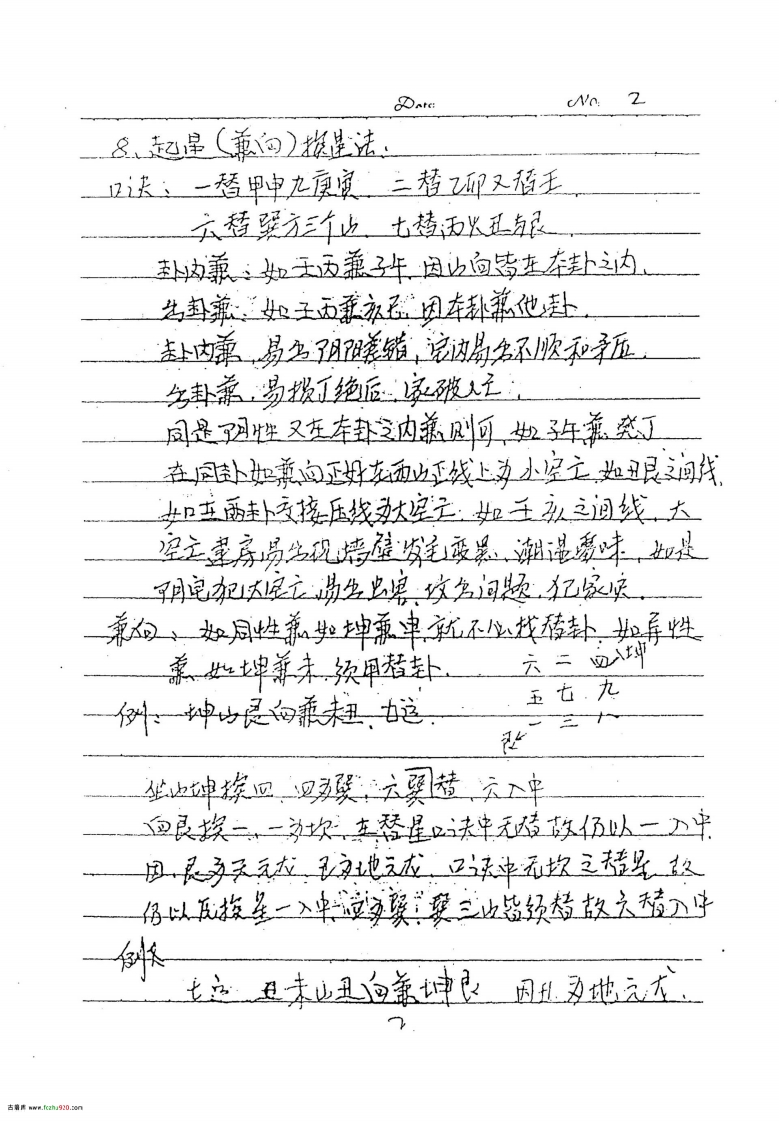 Date: No. 2
8、起星(兼向)挨星法:
口诀:一替甲申九庚寅 二替乙卯又替壬
六替巽方三个山 七替丙火丑与艮
卦内兼:如壬丙兼子午,因山向皆在本卦之内,
出卦兼:如壬丙兼亥巳,因本卦兼他卦.
卦内兼,易出阴阳差错,宅内易出不顺和矛盾.
出卦兼,易损丁绝后,家破人亡.
同是阴性又在本卦之内兼则可,如子午兼癸丁
在同卦如兼向正好在两山正线上为小空亡,如丑艮之间线,
如在两卦交接压线为大空亡,如壬亥之间线,大
空亡建房易出现墙壁发生变黑,潮湿霉味,如是
阴宅犯大空亡,易出虫害,坟出问题.
兼向:如同性兼如坤兼申,就不必找替卦,如异性
兼如坤兼未,须用替卦.
六 二 四入坤
五 七 九
艮 一 三 八
例:坤山艮向兼未丑,七运.
坐山坤挨四,四为巽,六巽替,六入中
向艮挨一,一为坎,在替星口诀中无替故仍以一入中,
因,艮为天元龙,丑为地元龙,口诀中无坎之替星,故
仍以原挨星一入中,四为巽,巽三山皆须替故六替入中
例
七运 丑未山丑向兼坤艮 因丑为地元龙.
2
古眉库 www.fczhu920.com